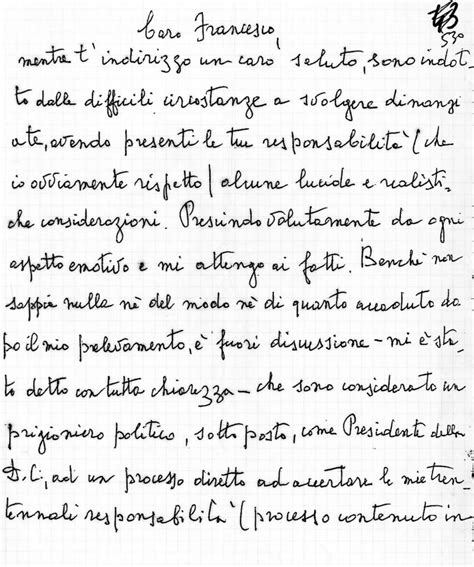 530
Caro Francesco,
mentre t'indirizzo un caro saluto, sono indot-
to dalle difficili circostanze a svolgere dinanzi
a te, avendo presenti le tue responsabilità (che
io ovviamente rispetto) alcune lucide e realisti-
che considerazioni. Prescindo volutamente da ogni
aspetto emotivo e mi attengo ai fatti. Benché non
sappia nulla né del modo né di quanto accaduto do
po il mio prelevamento, è fuori discussione - mi è sta_
to detto con tutta chiarezza - che sono considerato un
prigioniero politico, sottoposto, come Presidente della
D.C., ad un processo diretto ad accertare le mie tren_
tennali responsabilità (processo contenuto in